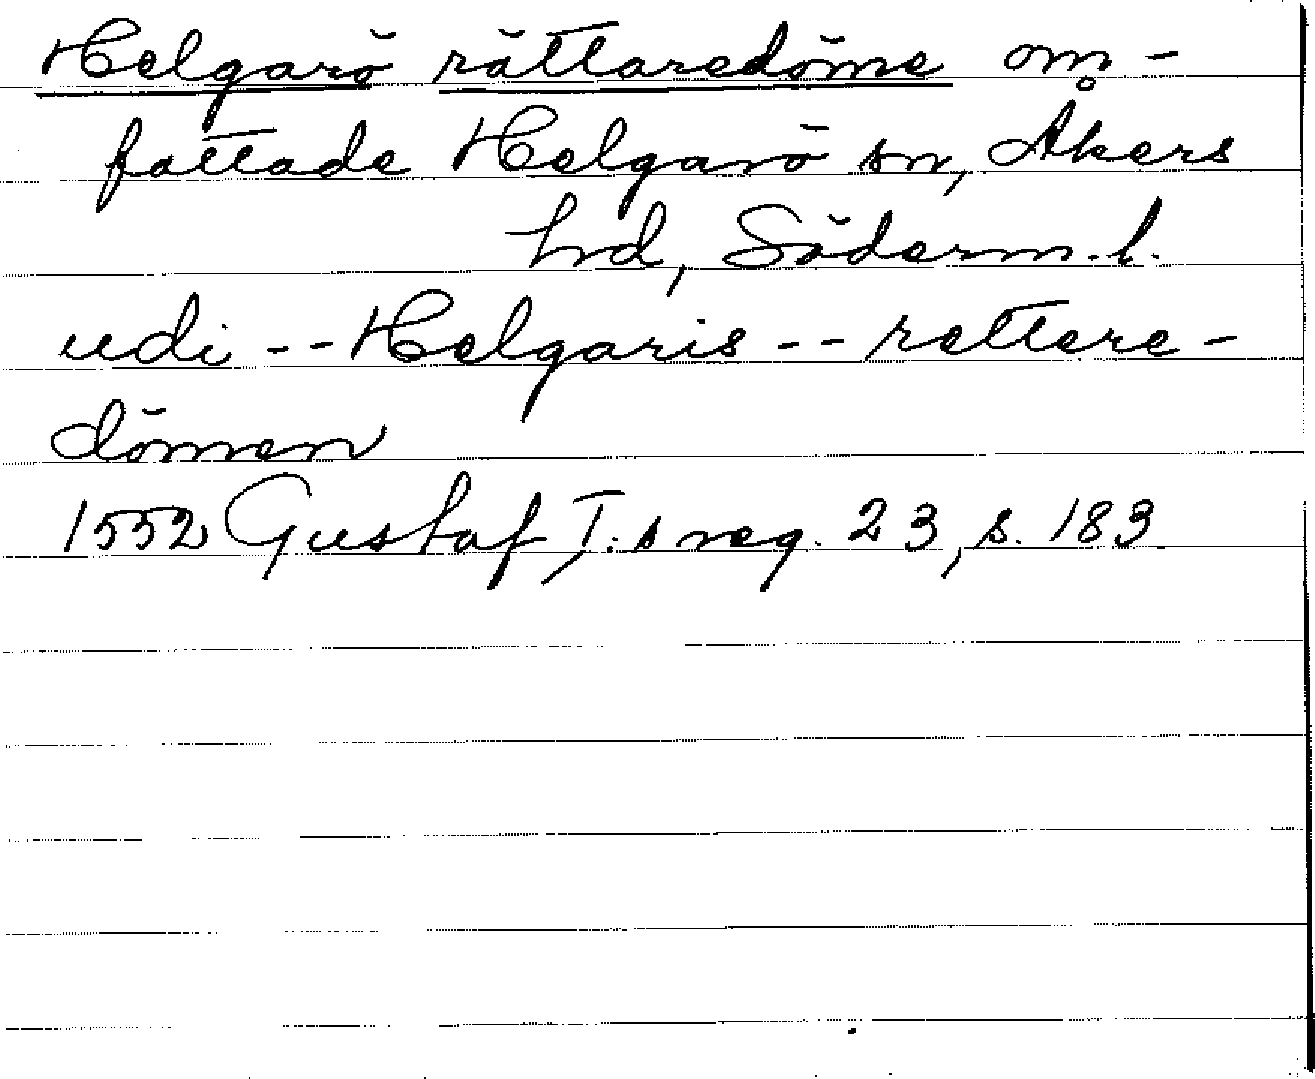 Helgarö rättaredöme om-
fattade Helgarö sn, Åkers
hd, Söderm. l.
udi -- Helgaris -- rettere-
dömen
1552 Gustaf I:s reg. 23, s. 183